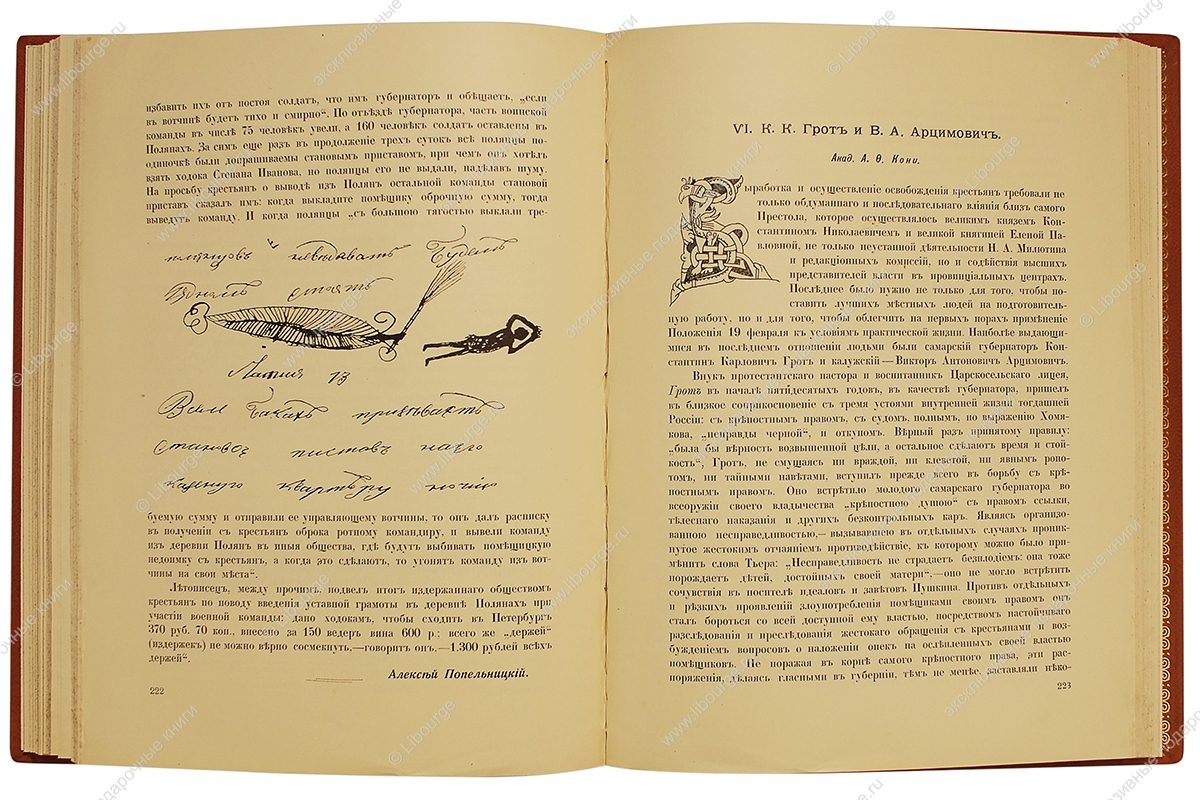 избавить ихъ отъ постоя солдатъ, что имъ губернаторъ и обѣщаетъ, „если
въ вотчинѣ будетъ тихо и смирно“. По отъѣздѣ губернатора, часть воинской
команды въ числѣ 75 человѣкъ увели, а 160 человѣкъ солдатъ оставлены въ
Полянахъ. За симъ еще разъ въ продолженіе трехъ сутокъ всѣ полянцы по-
одиночкѣ были допрашиваемы становымъ приставомъ, при чемъ онъ хотѣлъ
взять ходока Степана Иванова, но полянцы его не выдали, надѣлавъ шуму.
На просьбу крестьянъ о выводѣ изъ Полянъ остальной команды становой
приставъ сказалъ имъ: когда выкладите помѣщику оброчную сумму, тогда
выведутъ команду. И когда полянцы „съ большою тягостью выклали тре-
невыдавать Будемъ
стоять
Вамъ
наго
квартеру ночью
буемую сумму и отправили ее управляющему вотчины, то онъ далъ расписку
въ полученіи съ крестьянъ оброка ротному командиру, и вывели команду
изъ деревни Полянъ въ иныя общества, гдѣ будутъ выбивать помѣщицкую
недоимку съ крестьянъ, а когда это сдѣлаютъ, то угонятъ команду изъ вот-
чины на свои мѣста“.
Лѣтописецъ, между прочимъ, подвелъ итогъ издержаннаго обществомъ
крестьянъ по поводу введенія уставной грамоты въ деревнѣ Полянахъ при
участіи военной команды: дано ходокамъ, чтобы сходить въ Петербургъ
370 руб. 70 коп., внесено за 150 ведеръ вина 600 р.; всего же „держей“
(издержекъ) не можно вѣрно сосмекнуть,—говоритъ онъ,—1.300 рублей всѣхъ
держей“.
Алексѣй Попельницкій.
222
VI. К. К. Гротъ и В. А. Арцимовичъ.
Акад. А. Ѳ. Кони.
Выработка и осуществленіе освобожденія крестьянъ требовали не
только обдуманнаго и послѣдовательнаго вліянія близъ самого
Престола, которое осуществлялось великимъ княземъ Кон-
стантиномъ Николаевичемъ и великой княгиней Еленой Па-
вловной, не только неустанной дѣятельности Н. А. Милютина
и редакціонныхъ комиссій, но и содѣйствія высшихъ
представителей власти въ провинціальныхъ центрахъ.
Послѣднее было нужно не только для того, чтобы по-
ставить лучшихъ мѣстныхъ людей на подготовитель-
ную работу, но и для того, чтобы облегчить на первыхъ порахъ примѣненіе
Положенія 19 февраля къ условіямъ практической жизни. Наиболѣе выдающи-
мися въ послѣднемъ отношеніи людьми были самарскій губернаторъ Кон-
стантинъ Карловичъ Гротъ и калужскій—Викторъ Антоновичъ Арцимовичъ.
Внукъ протестантскаго пастора и воспитанникъ Царскосельскаго лицея,
Гротъ въ началѣ пятидесятыхъ годовъ, въ качествѣ губернатора, пришелъ
въ близкое соприкосновеніе съ тремя устоями внутренней жизни тогдашней
Россіи: съ крѣпостнымъ правомъ, съ судомъ, полнымъ, по выраженію Хомя-
кова, „неправды черной“, и откупомъ. Вѣрный разъ принятому правилу:
„была бы вѣрность возвышенной цѣли, а остальное сдѣлаютъ время и стой-
кость“, Гротъ, не смущаясь ни враждой, ни клеветой, ни явнымъ ропо-
томъ, ни тайными навѣтами, вступилъ прежде всего въ борьбу съ крѣ-
постнымъ правомъ. Оно встрѣтило молодого самарскаго губернатора во
всеоружіи своего владычества „крѣпостною душою“ съ правомъ ссылки,
тѣлеснаго наказанія и другихъ безконтрольныхъ каръ. Являясь организо-
ванною несправедливостью,—вызывавшею въ отдѣльныхъ случаяхъ проник-
нутое жестокимъ отчаяніемъ противодѣйствіе, къ которому можно было при-
мѣнить слова Тьера: „Несправедливость не страдаетъ безплодіемъ: она тоже
порождаетъ дѣтей, достойныхъ своей матери“,—оно не могло встрѣтить
сочувствія въ носителѣ идеаловъ и завѣтовъ Пушкина. Противъ отдѣльныхъ
и рѣзкихъ проявленій злоупотребленія помѣщиками своимъ правомъ онъ
сталъ бороться со всей доступной ему властью, посредствомъ настойчиваго
разслѣдованія и преслѣдованія жестокаго обращенія съ крестьянами и воз-
бужденіемъ вопросовъ о наложеніи опекъ на ослѣпленныхъ своей властью
помѣщиковъ. Не поражая въ корнѣ самого крѣпостного права, эти рас-
поряженія, дѣлаясь гласными въ губерніи, тѣмъ не менѣе, заставляли нѣко-
223